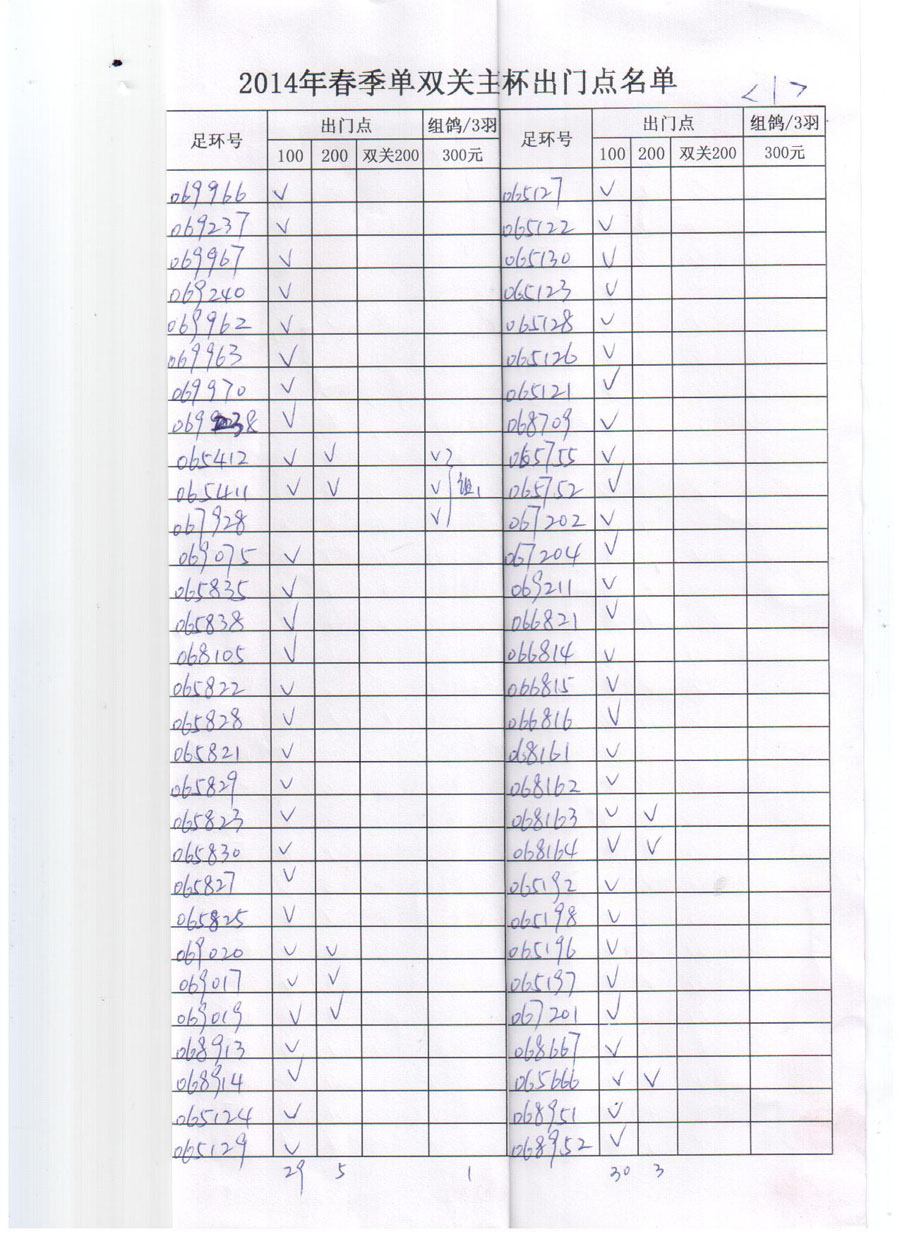 2014年春季单双关主杯出门点名单
<1>
足环号 出门点 组鸽/3羽 足环号 出门点 组鸽/3羽
100 200 双关200 300元 100 200 双关200 300元
069966 √ 065127 √
069237 √ 065122 √
069967 √ 065130 √
069240 √ 065123 √
069962 √ 065128 √
069963 √ 065126 √
069970 √ 065121 √
√ 068709 √
065412 √ √ √ 065755 √
065411 √ √ √ 组1 065752 √
067928 √ 067202 √
069075 √ 067204 √
065835 √ 069211 √
065838 √ 066821 √
068105 √ 066814 √
065822 √ 066815 √
065828 √ 066816 √
065821 √ 068161 √
065829 √ 068162 √
065823 √ 068163 √ √
065830 √ 068164 √ √
065827 √ 065192 √
065825 √ 065198 √
069020 √ √ 065196 √
069017 √ √ 065197 √
069019 √ √ 067201 √
068913 √ 068667 √
068914 √ 065666 √ √
065124 √ 068951 √
065129 √ 068952 √
29 5 1 30 3